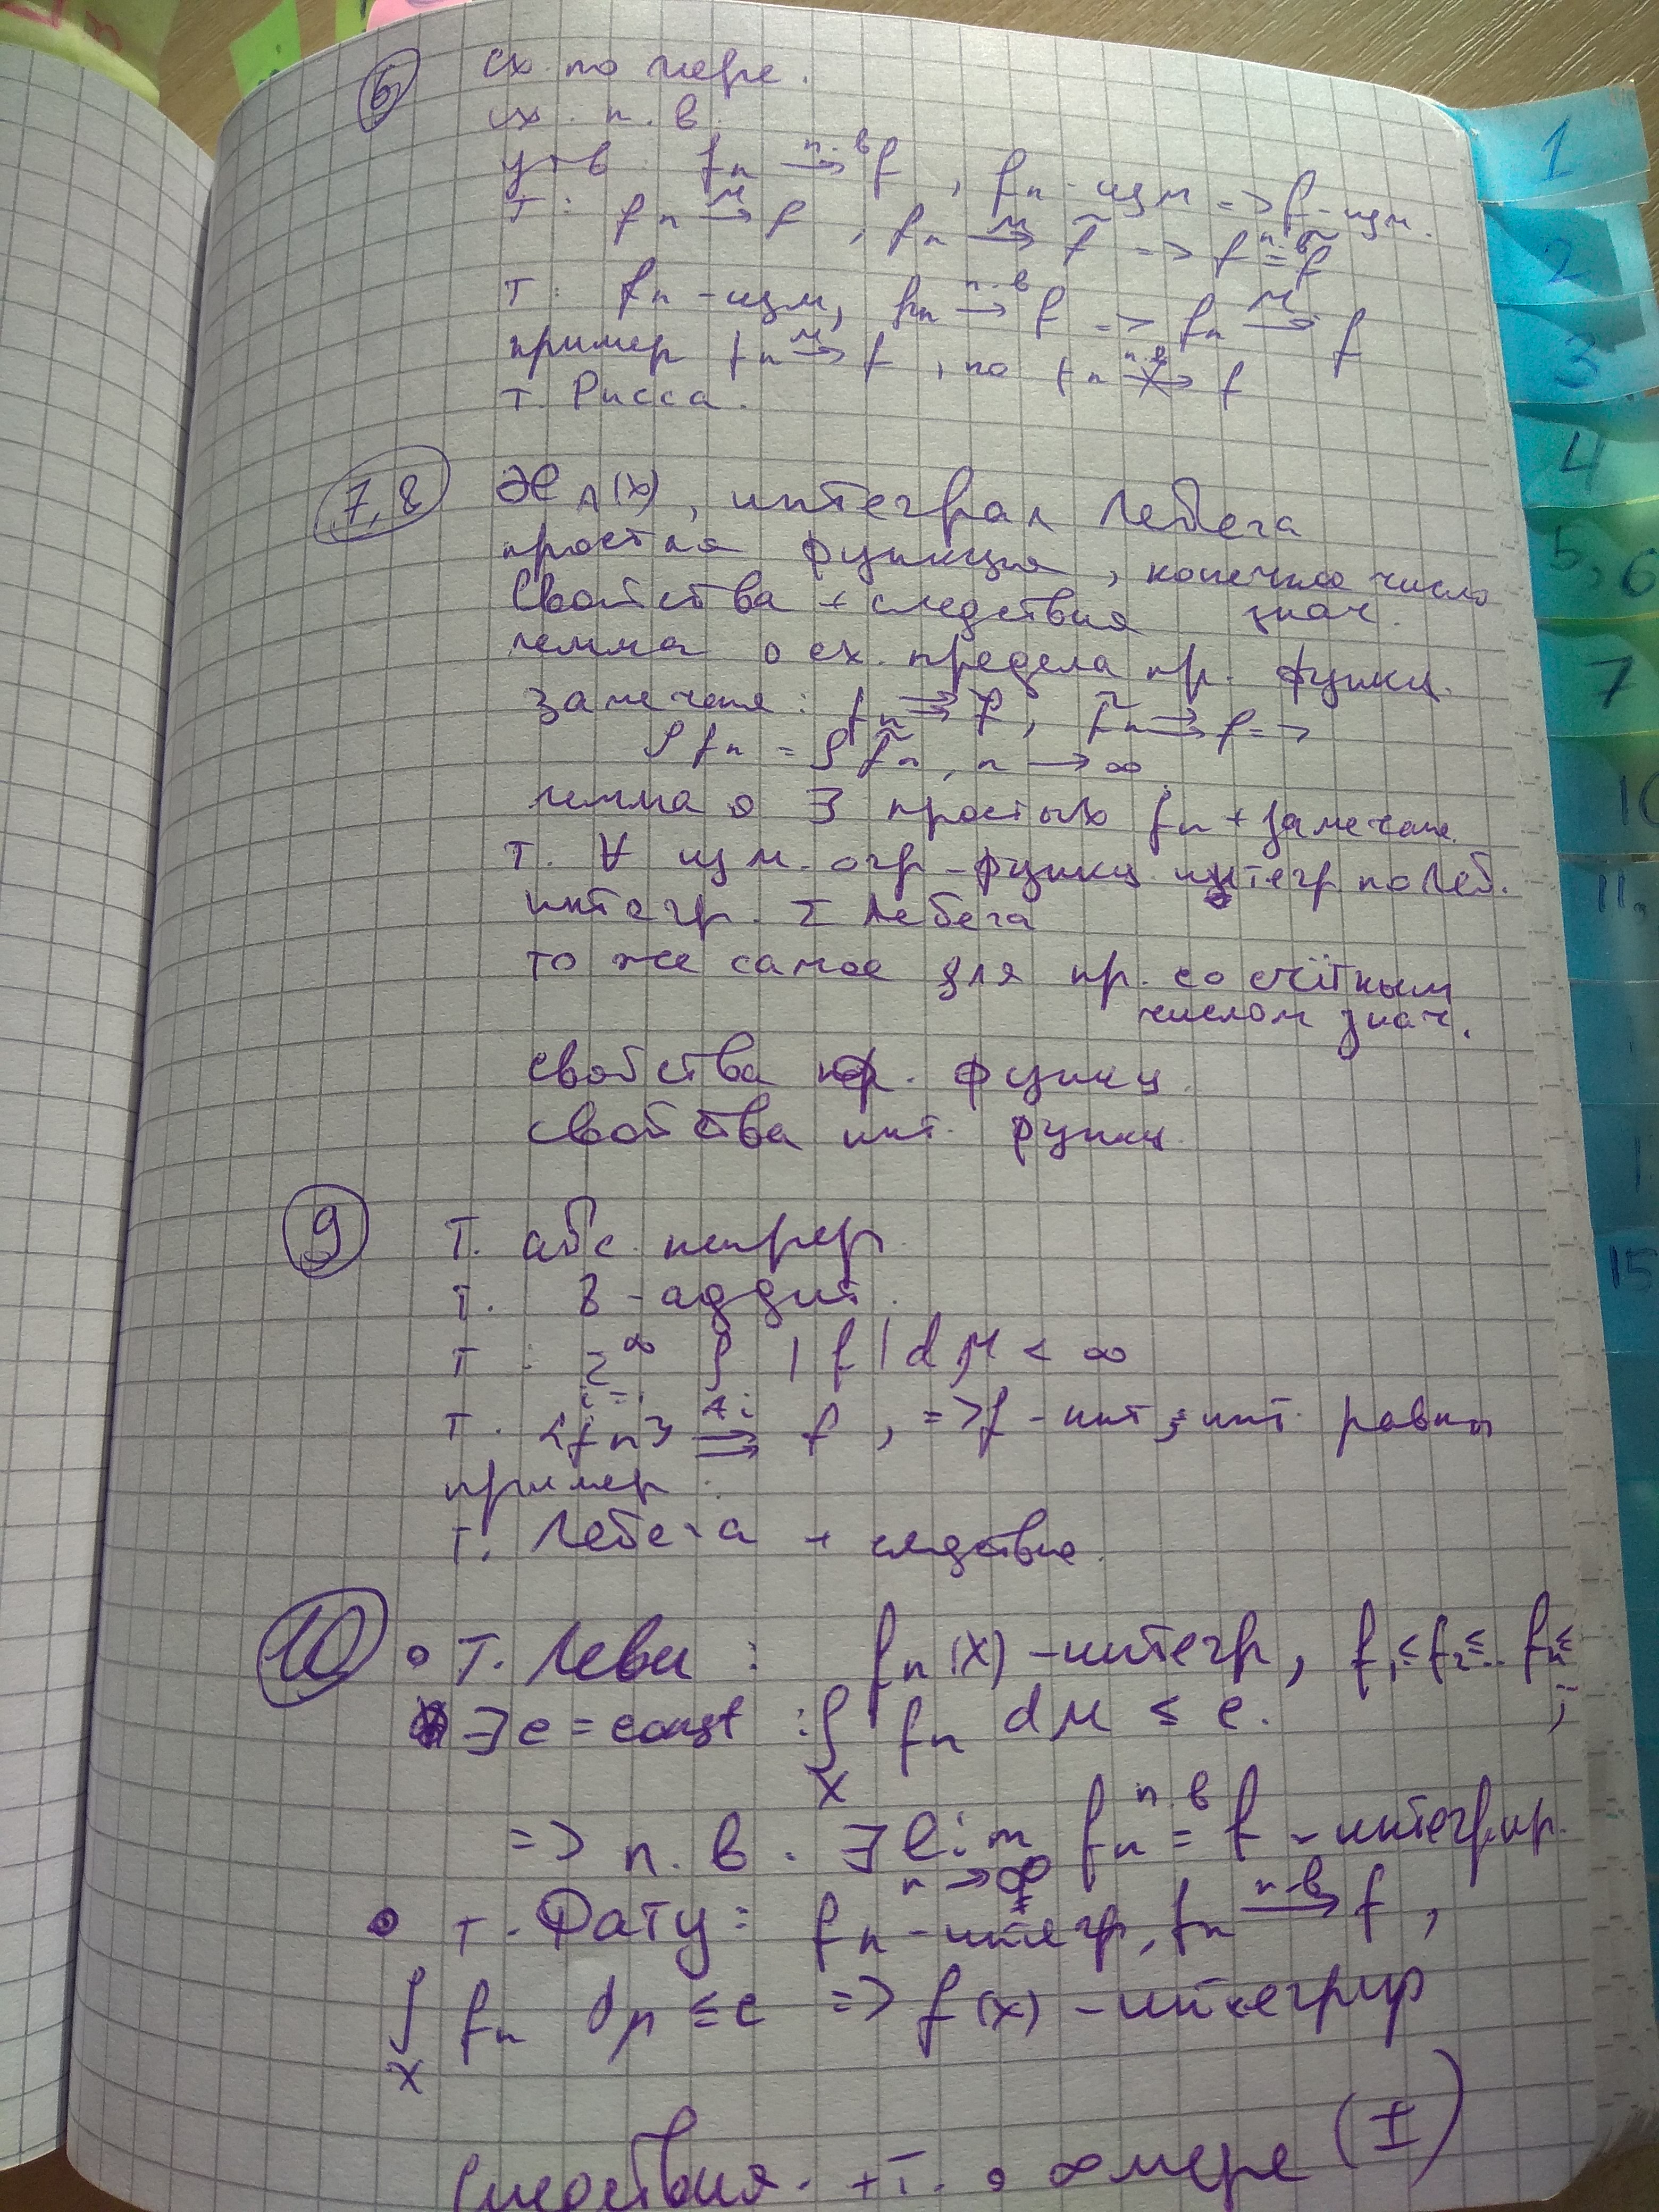 6 сх. по мере.
сх. п. в.
утв. fₙ →(п.в) f, fₙ - изм => f - изм.
Т: fₙ →(μ) f, fₙ →(μ) f̃ => f =(п.в) f̃
Т: fₙ - изм, fₙ →(п.в) f => fₙ →(μ) f
пример fₙ →(μ) f, но fₙ ↛(п.в) f
т. Рисса.
7,8 ℋ_A(x), интеграл Лебега
простая функция, конечное число
знач.
Свойства + следствия
лемма о сх. предела пр. функц.
замечание: fₙ ⇉ f, f̃ₙ ⇉ f =>
∫fₙ = ∫f̃ₙ, n → ∞
лемма о ∃ простых fₙ + замечание.
т. ∀ изм. огр - функц. интегр по Леб.
интегр. Σ Лебега
то же самое для пр. со счётным
числом знач.
свойства пр. функц.
свойства инт. функц.
9 Т. абс. непрер.
Т. δ - аддит.
Т: Σ_{i=1}^∞ ∫_{A_i} |f| dμ < ∞
Т. {fₙ} ⇉ f, => f - инт, инт. равны
пример:
т. Лебега + следствие.
10 • Т. Леви: fₙ(x) - интегр, f₁ ≤ f₂ ≤ .. fₙ ≤ ..;
∃ c = const : ∫_X fₙ dμ ≤ c.
=> п. в. ∃ lim_{n→∞} fₙ =(п.в) f - интегрир.
• т. Фату: fₙ - интегр, fₙ →(п.в) f,
∫_X fₙ dμ ≤ c => f(x) - интегрир
следствия. + Т. о ∞ мере (I)
1
2
3
4
5, 6
7
10
11,
1
15